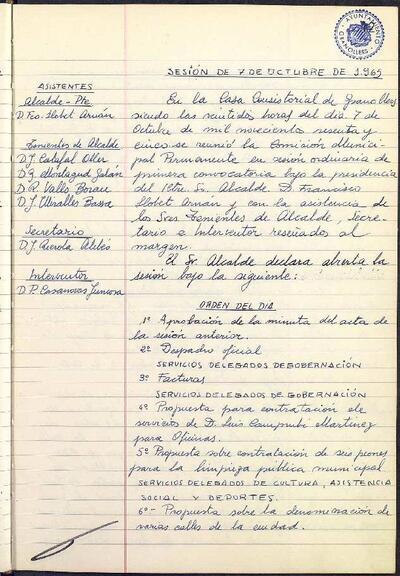 AYUNTAMIENTO
GRANOLLERS
SESIÓN DE 7 DE OCTUBRE DE 1.965
ASISTENTES
Alcalde - Pte
D. Fco. Llobet Arnán
Tenientes de Alcalde
D. J. Catafal Oller
D. J. Montagud Galán
D. R. Vallés Borau
D. J. Miralles Bassa
Secretario
D. J.
Interventor
D. P. Casanovas Juncosa
En la Casa Consistorial de Granollers
siendo las veintidos horas del dia 7 de
Octubre de mil novecientos sesenta y
cinco se reunió la Comisión Munici-
pal Permanente en sesión ordinaria de
primera convocatoria bajo la presidencia
del Iltre. Sr. Alcalde D. Francisco
Llobet Arnán y con la asistencia de
los Sres Tenientes de Alcalde, Secre-
tario e Interventor reseñados al
margen.
El Sr. Alcalde declara abierta la
sesión bajo la siguiente:
ORDEN DEL DIA
1º Aprobación de la minuta del acta de
la sesión anterior.
2º Despacho oficial
SERVICIOS DELEGADOS DE GOBERNACIÓN
3º Facturas
SERVICIOS DELEGADOS DE GOBERNACIÓN
4º Propuesta para contratación de
servicios de D. Luis Campubí Martínez
para Oficinas.
5º Propuesta sobre contratación de seis peones
para la limpieza pública municipal
SERVICIOS DELEGADOS DE CULTURA, ASISTENCIA
SOCIAL Y DEPORTES.
6º- Propuesta sobre la denominación de
varias calles de la ciudad.